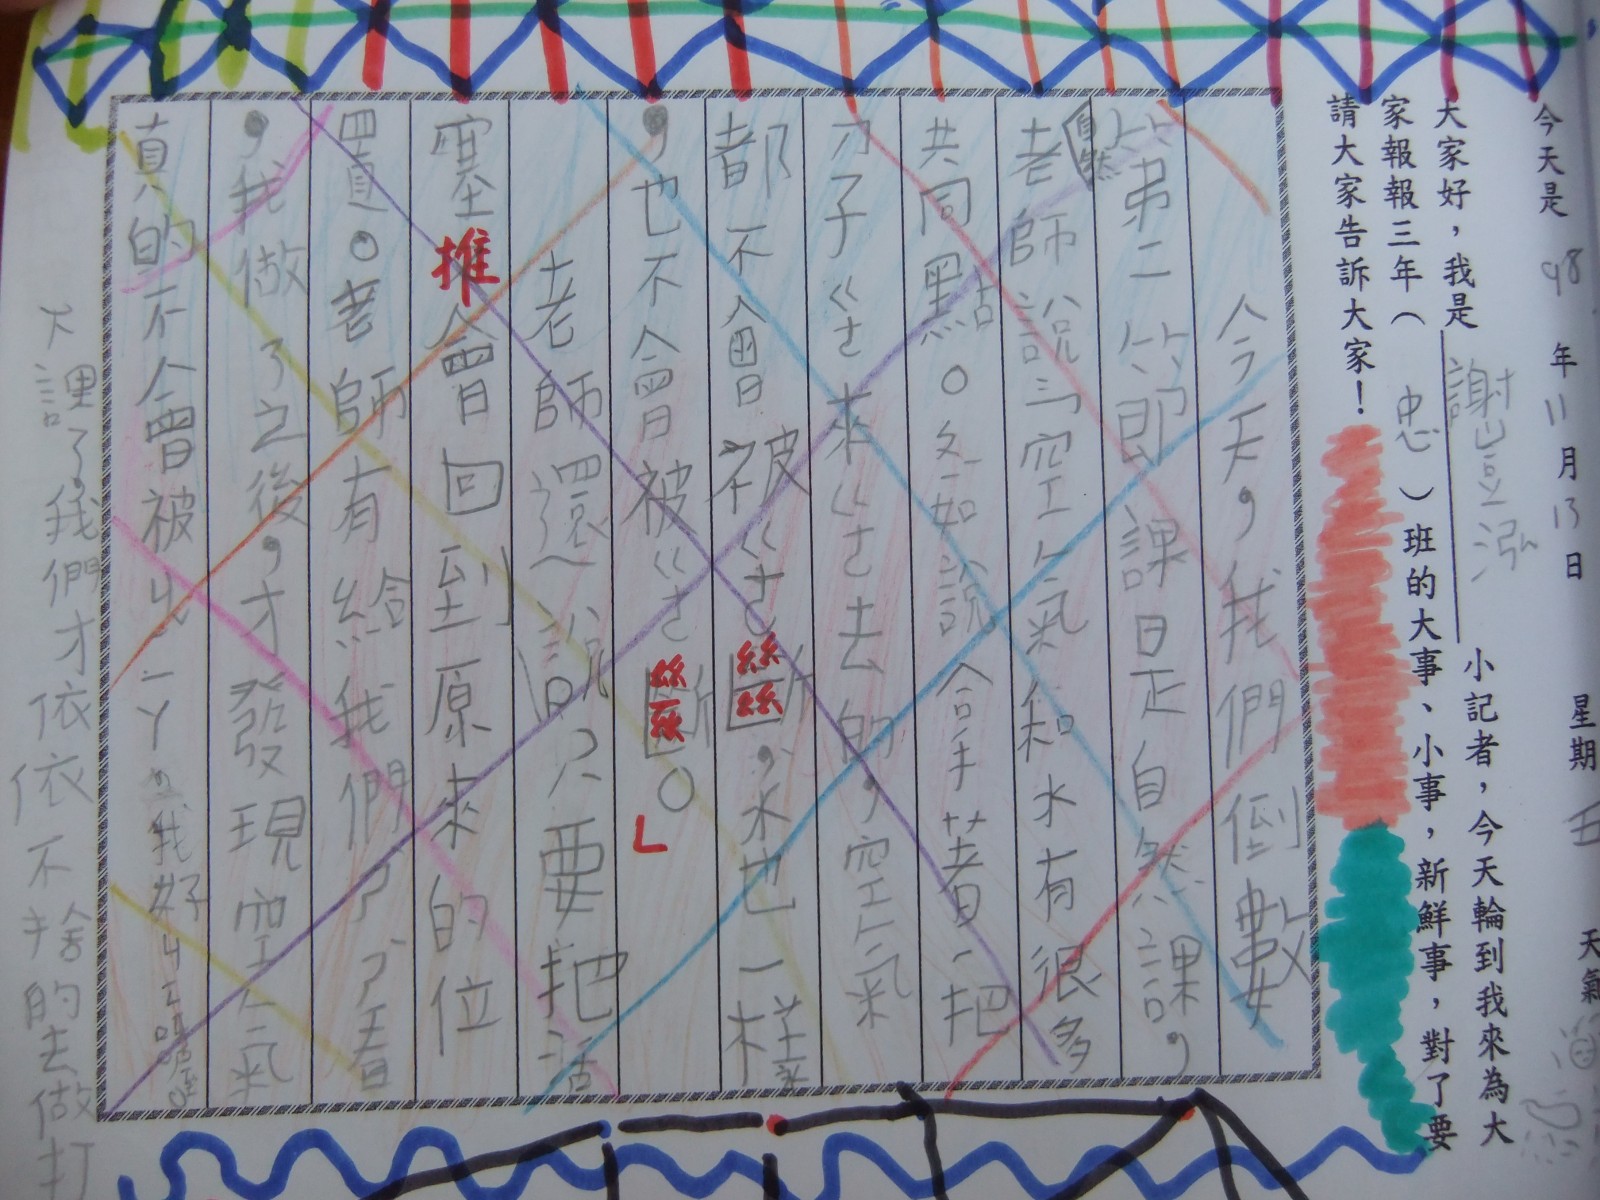 今天是 98 年 11 月 13 日 星期 五 天氣
大家好，我是 謝豈泓 小記者，今天輪到我來為大
家報報三年（ 忠 ）班的大事、小事，新鮮事，對了要
請大家告訴大家！
今天，我們倒數
第二節課是自然課，
自然
老師說ㄢ空氣和水有很多
共同點。例如說：拿著一把
刀子ㄍㄜ來ㄍㄜ去的，空氣
都不會被ㄍㄜ斷，水也一樣
，也不會被ㄍㄜ斷。
老師還說只要把活
塞推會回到原來的位
置。老師有給我們ㄋㄋ看
，我做了之後，才發現空氣
真的不會被ㄐㄧㄚ
下課了，我們才依依不捨的去做打